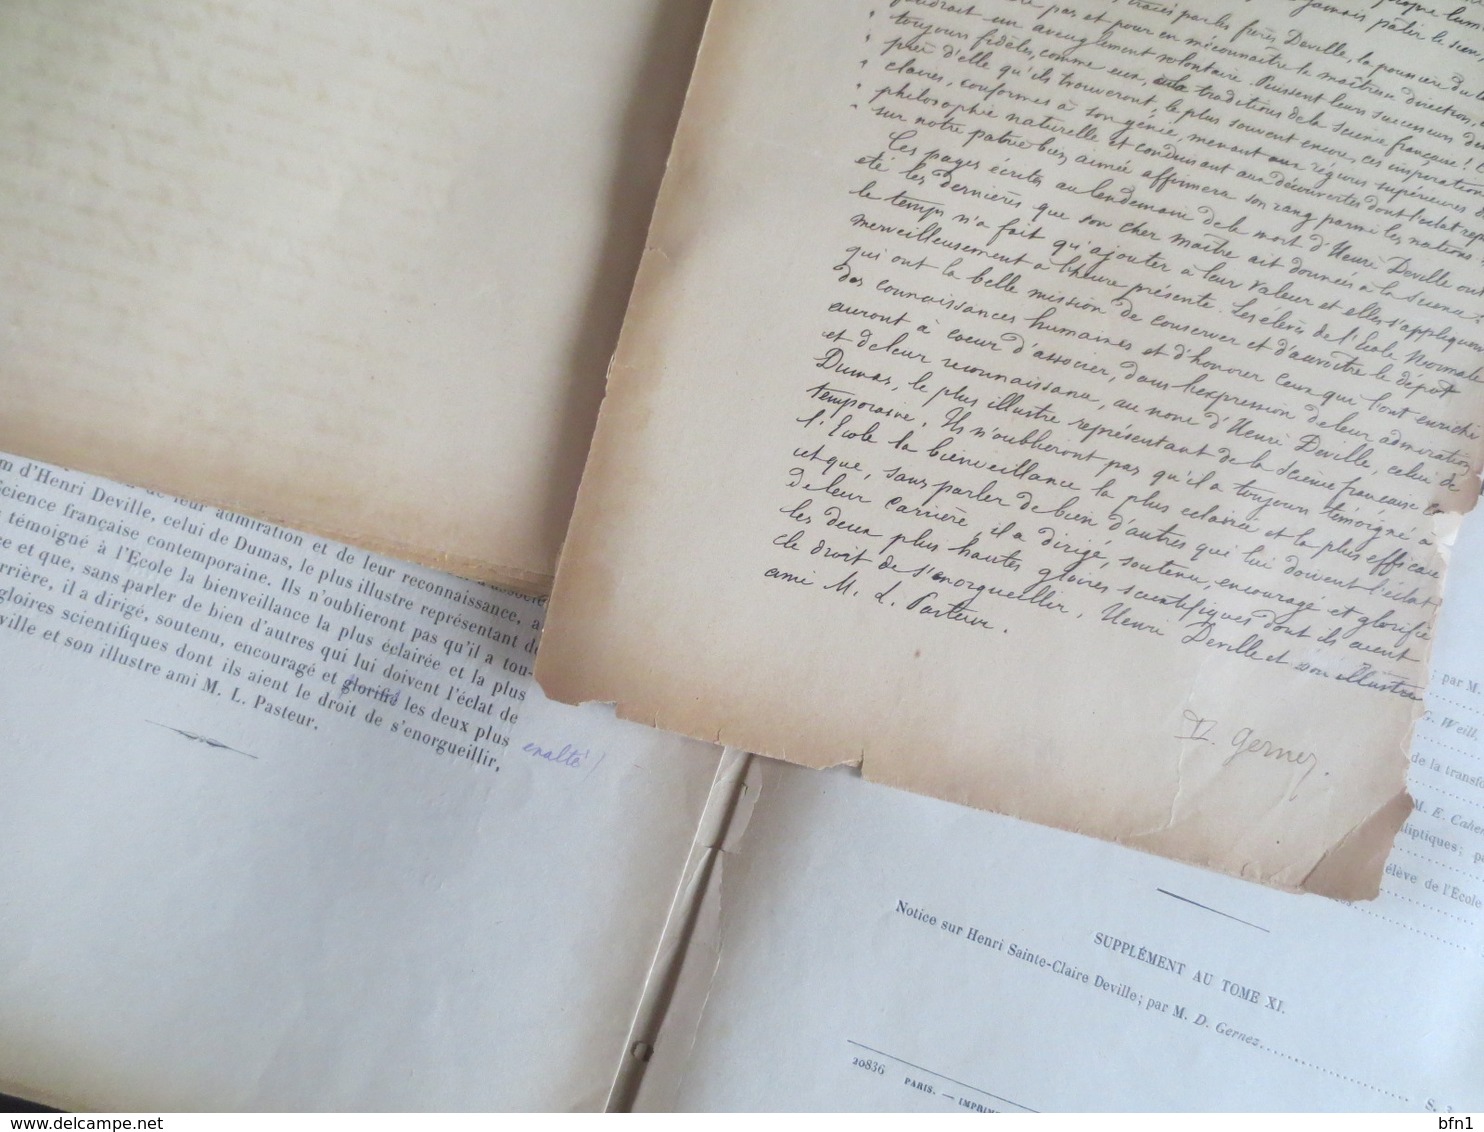 tracés par les frères Deville, la poussière du t
faudrait un aveuglement volontaire. Puissent leurs successeurs de
toujours fidèles, comme eux, aux traditions de la science française !
près d'elle qu'ils trouveront, le plus souvent encore, ces inspiration
claires, conformes à son génie, menant aux régions supérieures de
philosophie naturelle et conduisant aux découvertes dont l'éclat rep
sur notre patrie bien aimée affirmera son rang parmi les nations !
Ces pages écrites au lendemain de la mort d'Henri Deville ont
été les dernières que son cher maître ait données à la Science :
le temps n'a fait qu'ajouter à leur valeur et elles s'appliquen
merveilleusement à l'heure présente. Les élèves de l'Ecole Normale
qui ont la belle mission de conserver et d'accroître le dépôt
des connaissances humaines et d'honorer ceux qui l'ont enrichi
auront à cœur d'associer, dans l'expression de leur admiration
et de leur reconnaissance, au nom d'Henri Deville, celui de
Dumas, le plus illustre représentant de la Science française co
temporaine. Ils n'oublieront pas qu'il a toujours témoigné à
l'Ecole la bienveillance la plus éclairée et la plus efficace
et que, sans parler de bien d'autres qui lui doivent l'éclat
de leur carrière il a dirigé, soutenu, encouragé et glorifié
les deux plus hautes gloires scientifiques dont ils aient
le droit de s'enorgueillir, Henri Deville et son illustre
ami M. L. Pasteur.
D. Gernez.
de leur admiration et de leur reconnaissance, a
m d'Henri Deville, celui de Dumas, le plus illustre représentant de
Science française contemporaine. Ils n'oublieront pas qu'il a tou-
témoigné à l'Ecole la bienveillance la plus éclairée et la plus
ce et que, sans parler de bien d'autres qui lui doivent l'éclat de
rrière, il a dirigé, soutenu, encouragé et glorifié les deux plus
gloires scientifiques dont ils aient le droit de s'enorgueillir,
ville et son illustre ami M. L. Pasteur.
exalté /
; par M.
G. Weill.
de la transfo
M. E. Cahe
lliptiques; p
élève de l'Ecole
SUPPLÉMENT AU TOME XI.
Notice sur Henri Sainte-Claire Deville; par M. D. Gernez
S. 3
20836 PARIS. — IMPRIME
delcampe.net
bfn1